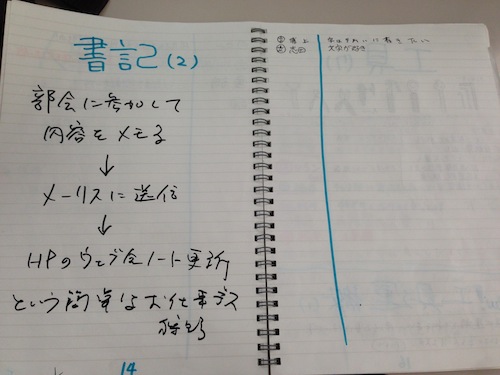 書記(2)
部会に参加して
内容をメモる
↓
メーリスに送信
↓
HPのウェブ全ノート更新
という簡単なお仕事デス
14
字はきれいに書きたい
文学が好き
16